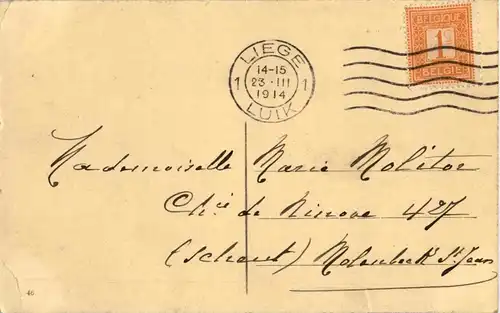 BELGIQUE
1
BELGIË
LIEGE
14-15
1 23·III 1
1914
LUIK
Mademoiselle Marie Molitor
Ch.ée de Ninove 427
(Scheut) Molenbeek St. Jean
46